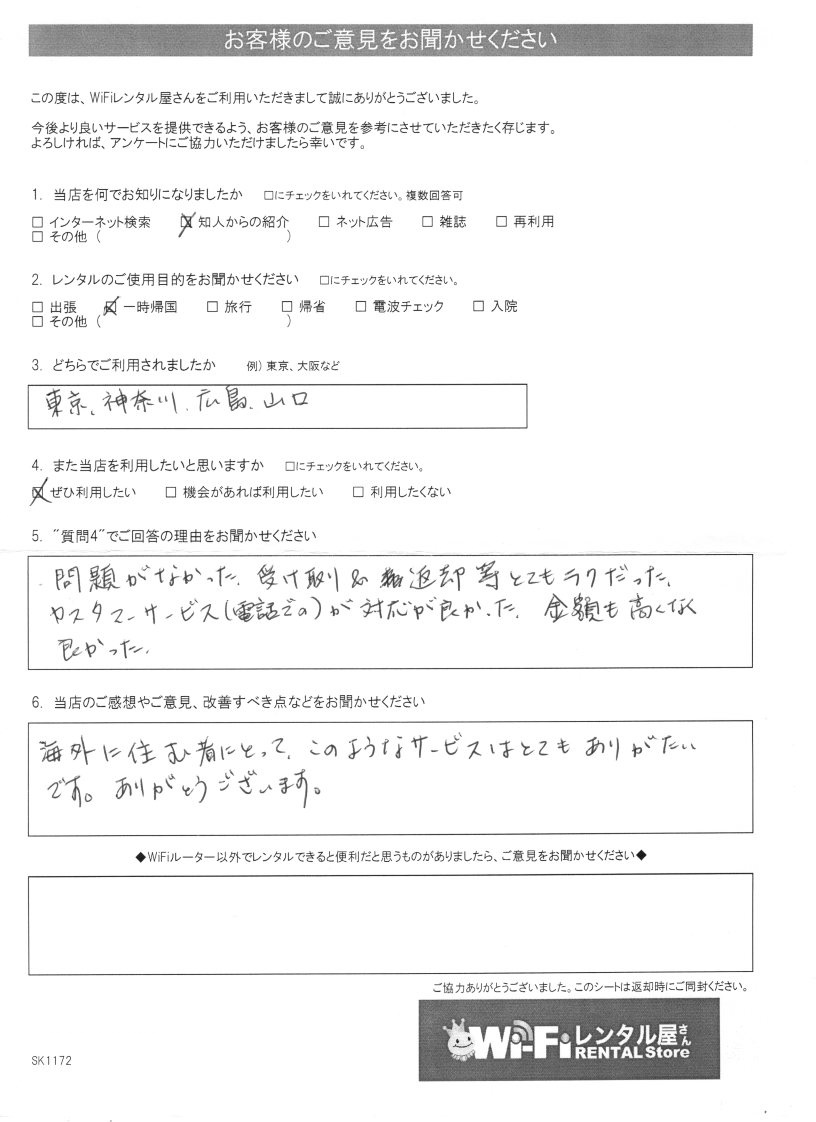 お客様のご意見をお聞かせください
この度は、WiFiレンタル屋さんをご利用いただきまして誠にありがとうございました。
今後より良いサービスを提供できるよう、お客様のご意見を参考にさせていただきたく存じます。
よろしければ、アンケートにご協力いただけましたら幸いです。
1. 当店を何でお知りになりましたか □にチェックをいれてください。複数回答可
□ インターネット検索 ☒ 知人からの紹介 □ ネット広告 □ 雑誌 □ 再利用
□ その他 ( )
2. レンタルのご使用目的をお聞かせください □にチェックをいれてください。
□ 出張 ☒ 一時帰国 □ 旅行 □ 帰省 □ 電波チェック □ 入院
□ その他 ( )
3. どちらでご利用されましたか 例) 東京、大阪など
東京、神奈川、広島、山口
4. また当店を利用したいと思いますか □にチェックをいれてください。
☒ ぜひ利用したい □ 機会があれば利用したい □ 利用したくない
5. "質問4"でご回答の理由をお聞かせください
問題がなかった、受け取り& 返却等とてもラクだった、
カスタマーサービス(電話での)が対応が良かった、金額も高くなく
良かった、
6. 当店のご感想やご意見、改善すべき点などをお聞かせください
海外に住む者にとって、このようなサービスはとてもありがたい
です。ありがとうございます。
◆WiFiルーター以外でレンタルできると便利だと思うものがありましたら、ご意見をお聞かせください◆
ご協力ありがとうございました。このシートは返却時にご同封ください。
Wi-Fiレンタル屋さん
RENTAL Store
SK1172